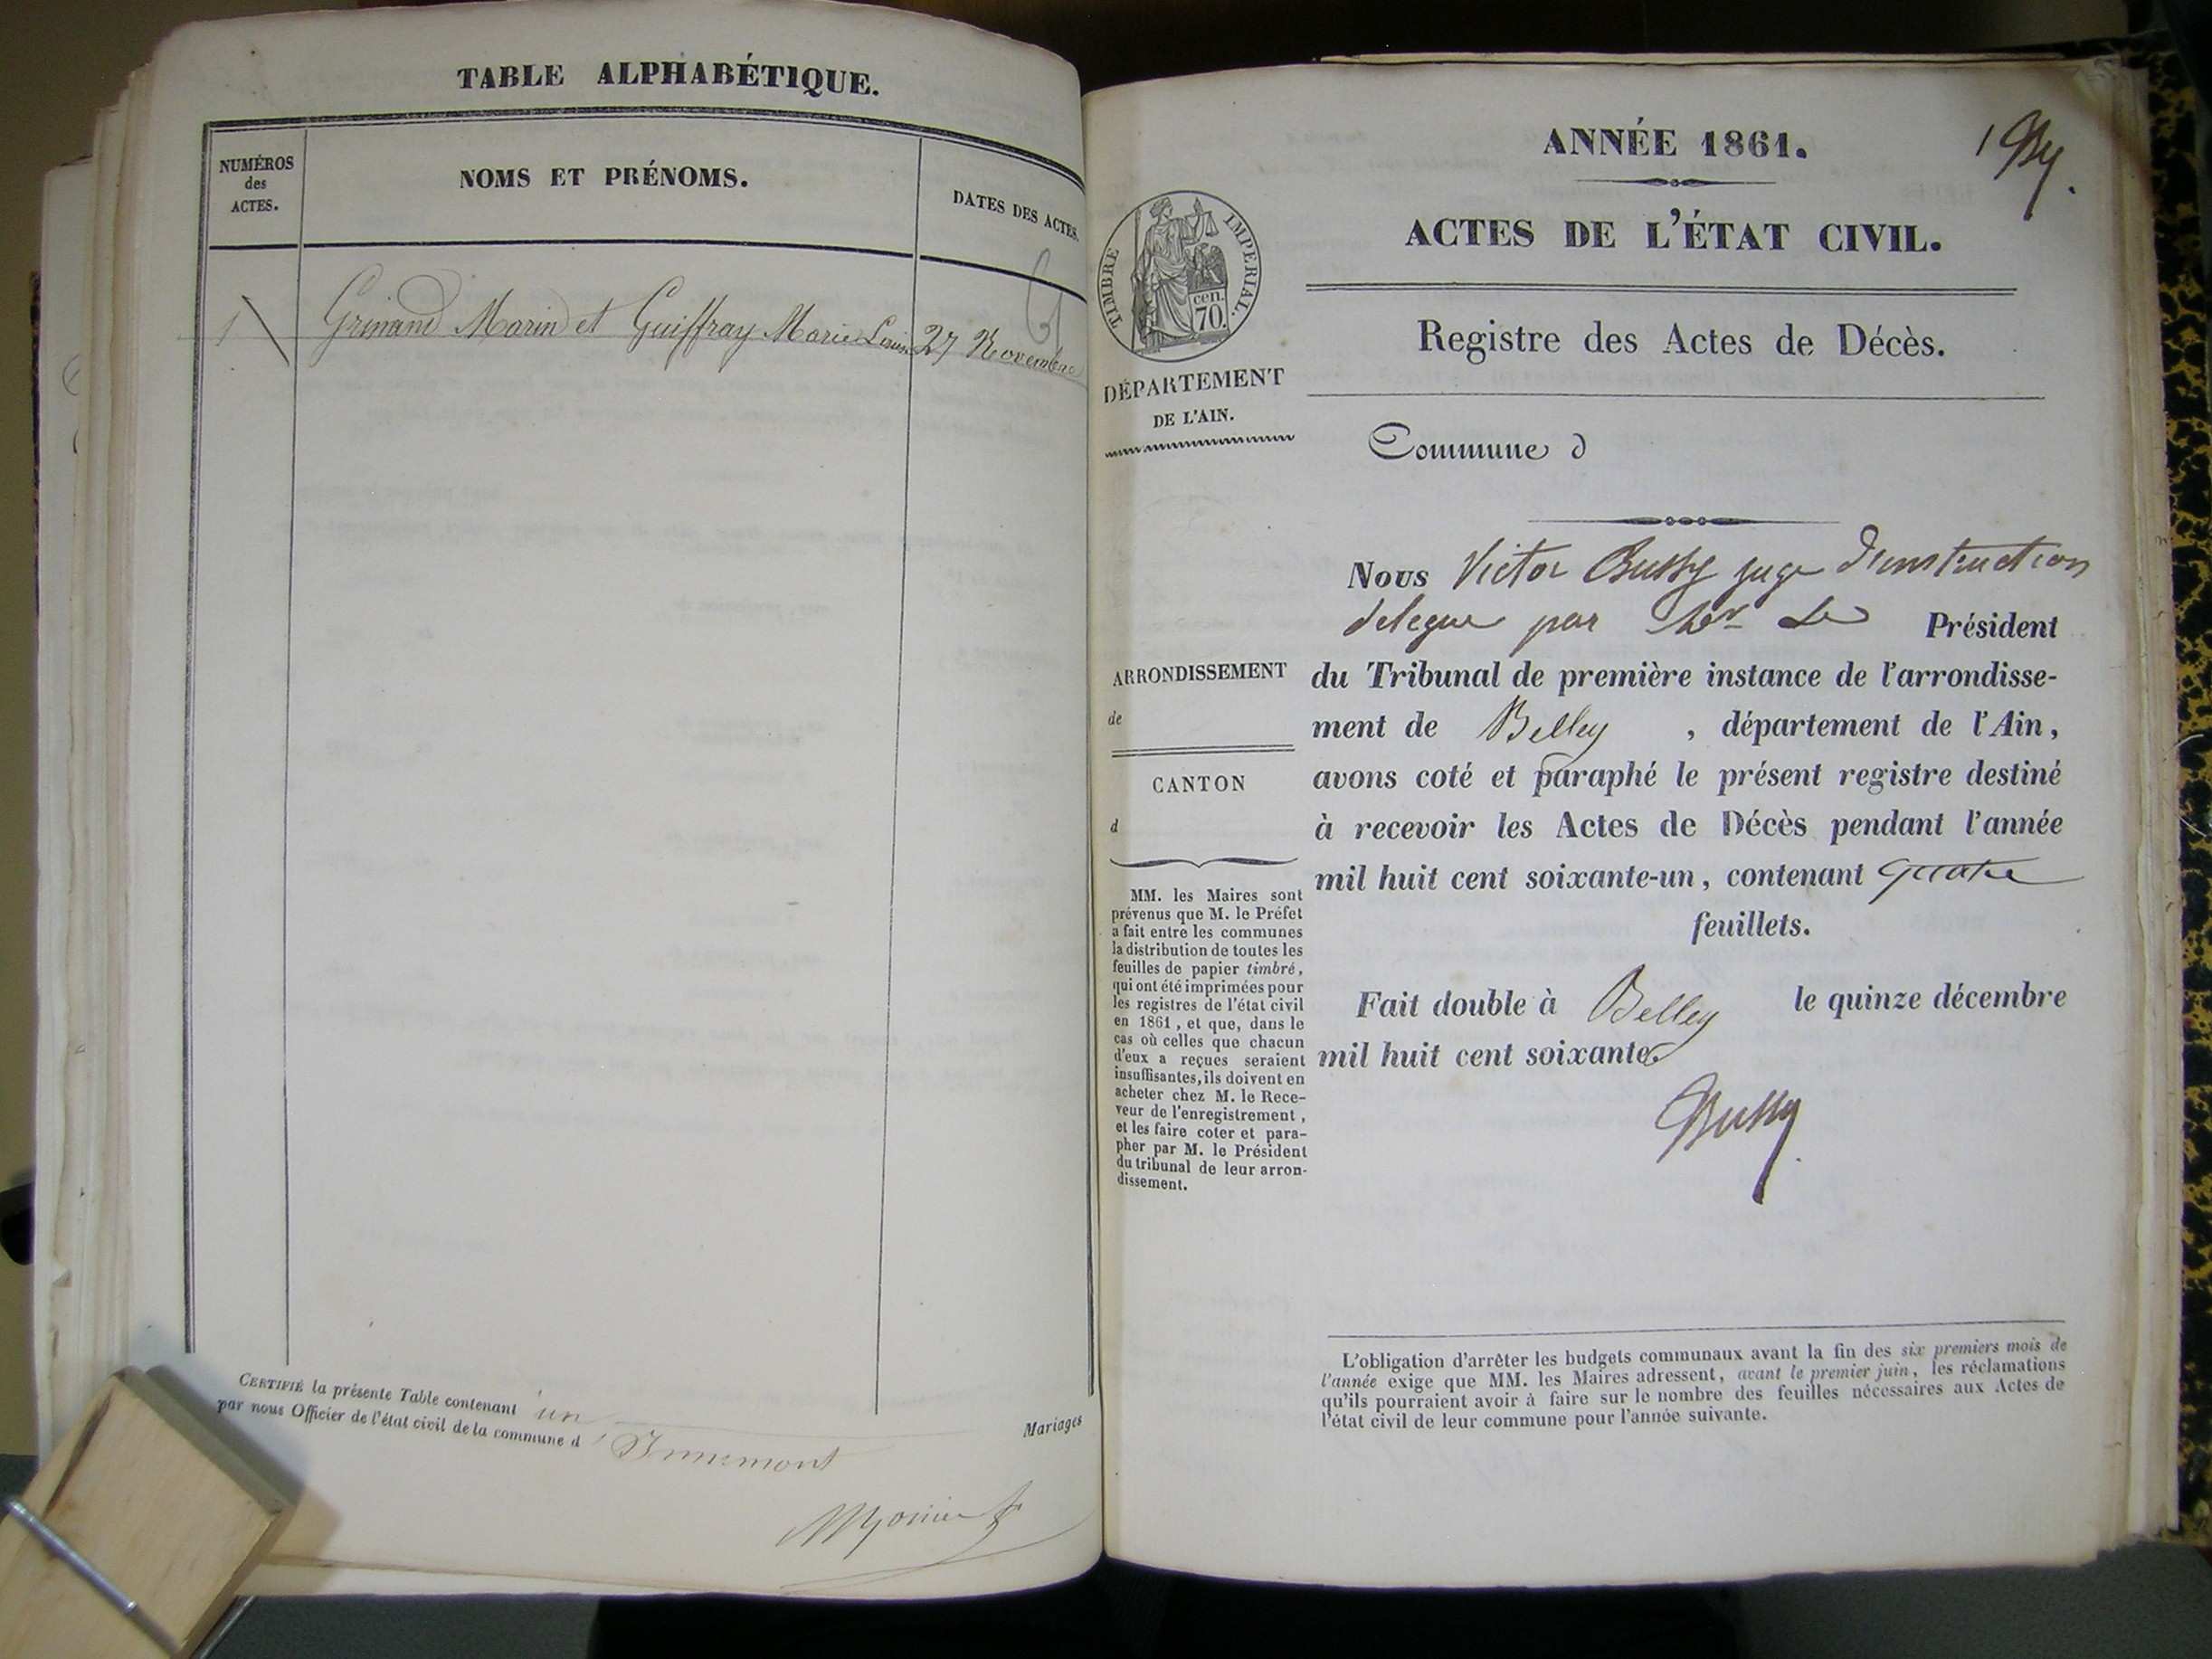 TABLE ALPHABÉTIQUE.
NUMÉROS
des
ACTES.
NOMS ET PRÉNOMS.
DATES DES ACTES.
1
Grinand Marin et Guiffray Marie Louise
27 Novembre
CERTIFIÉ la présente Table contenant un Mariages
par nous Officier de l'état civil de la commune d'Innimont
ANNÉE 1861.
ACTES DE L'ÉTAT CIVIL.
Registre des Actes de Décès.
TIMBRE IMPÉRIAL.
cen.
70.
DÉPARTEMENT
DE L'AIN.
ARRONDISSEMENT
de
CANTON
d
MM. les Maires sont
prévenus que M. le Préfet
a fait entre les communes
la distribution de toutes les
feuilles de papier timbré,
qui ont été imprimées pour
les registres de l'état civil
en 1861, et que, dans le
cas où celles que chacun
d'eux a reçues seraient
insuffisantes, ils doivent en
acheter chez M. le Rece-
veur de l'enregistrement,
et les faire coter et para-
pher par M. le Président
du tribunal de leur arron-
dissement.
Commune d
Nous Victor Bussy juge d'instruction
delegue par Mr Le Président
du Tribunal de première instance de l'arrondisse-
ment de Belley, département de l'Ain,
avons coté et paraphé le présent registre destiné
à recevoir les Actes de Décès pendant l'année
mil huit cent soixante-un, contenant quatre
feuillets.
Fait double à Belley le quinze décembre
mil huit cent soixante.
Bussy
L'obligation d'arrêter les budgets communaux avant la fin des six premiers mois de
l'année exige que MM. les Maires adressent, avant le premier juin, les réclamations
qu'ils pourraient avoir à faire sur le nombre des feuilles nécessaires aux Actes de
l'état civil de leur commune pour l'année suivante.